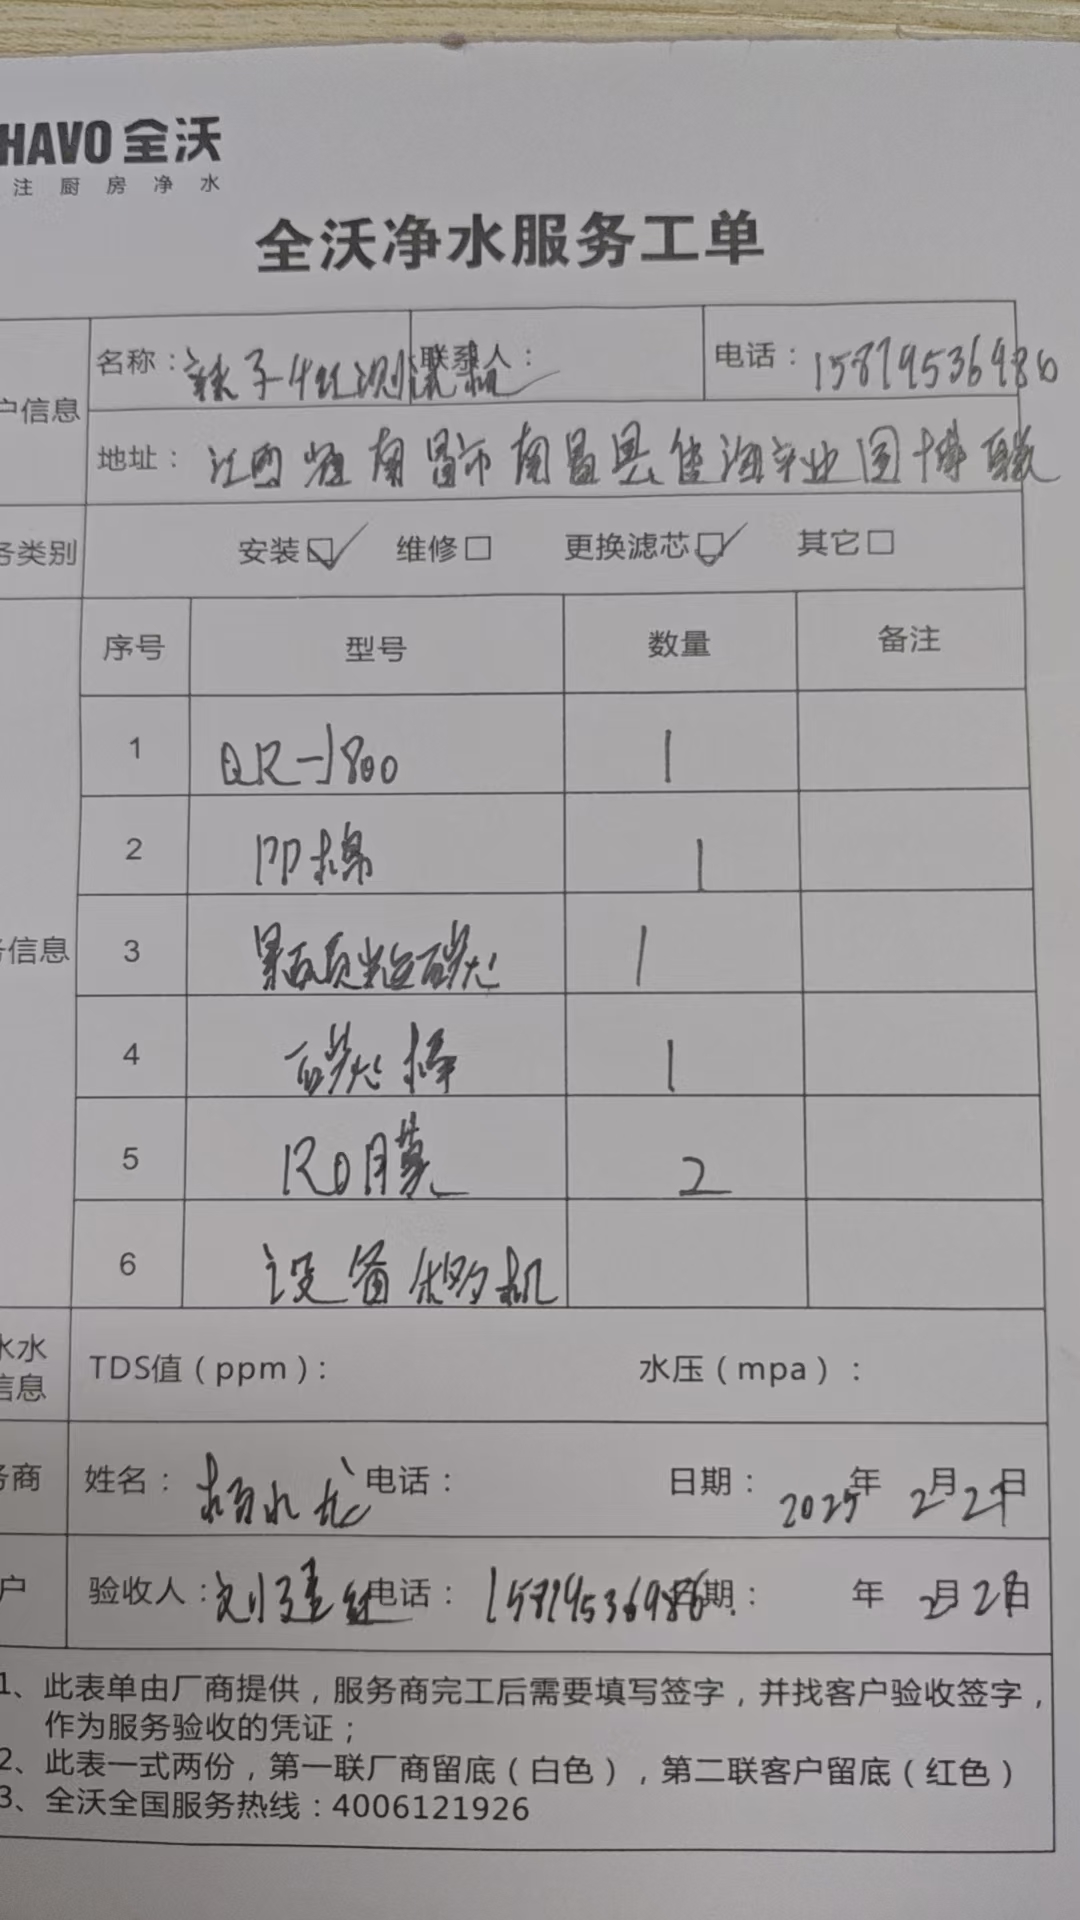 HAVO 全沃
注厨房净水
全沃净水服务工单
户信息
名称：辣子 联系人： 电话：15879536986
地址：江西省南昌市南昌县佳海产业园博
务类别 安装☑ 维修☐ 更换滤芯☑ 其它☐
序号 型号 数量 备注
1 QR-J800 1
2 PP棉 1
务信息 3 果壳颗粒碳 1
4 碳棒 1
5 RO膜 2
6 设备 机
水水信息 TDS值（ppm）： 水压（mpa）：
务商 姓名：杨水龙 电话： 日期：2025年2月27日
户 验收人：刘建红 电话：15879536986 日期： 年2月27日
1、此表单由厂商提供，服务商完工后需要填写签字，并找客户验收签字，
作为服务验收的凭证；
2、此表一式两份，第一联厂商留底（白色），第二联客户留底（红色）
3、全沃全国服务热线：4006121926